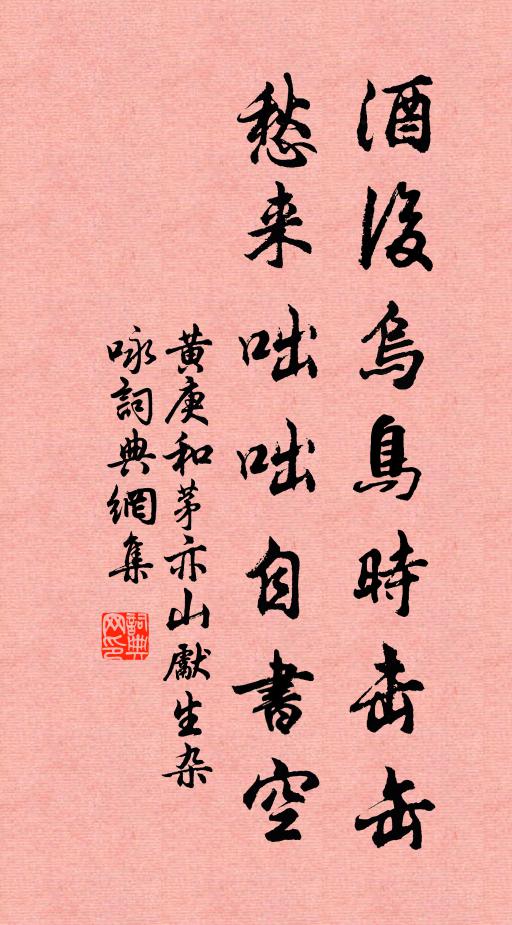 酒後烏烏時击缶
愁来咄咄自書空
黄庚和茅亦山獻生杂
咏詞典網集
詞典
网印